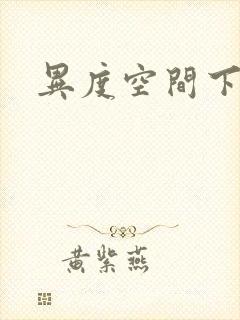 異度空間下
黃紫燕